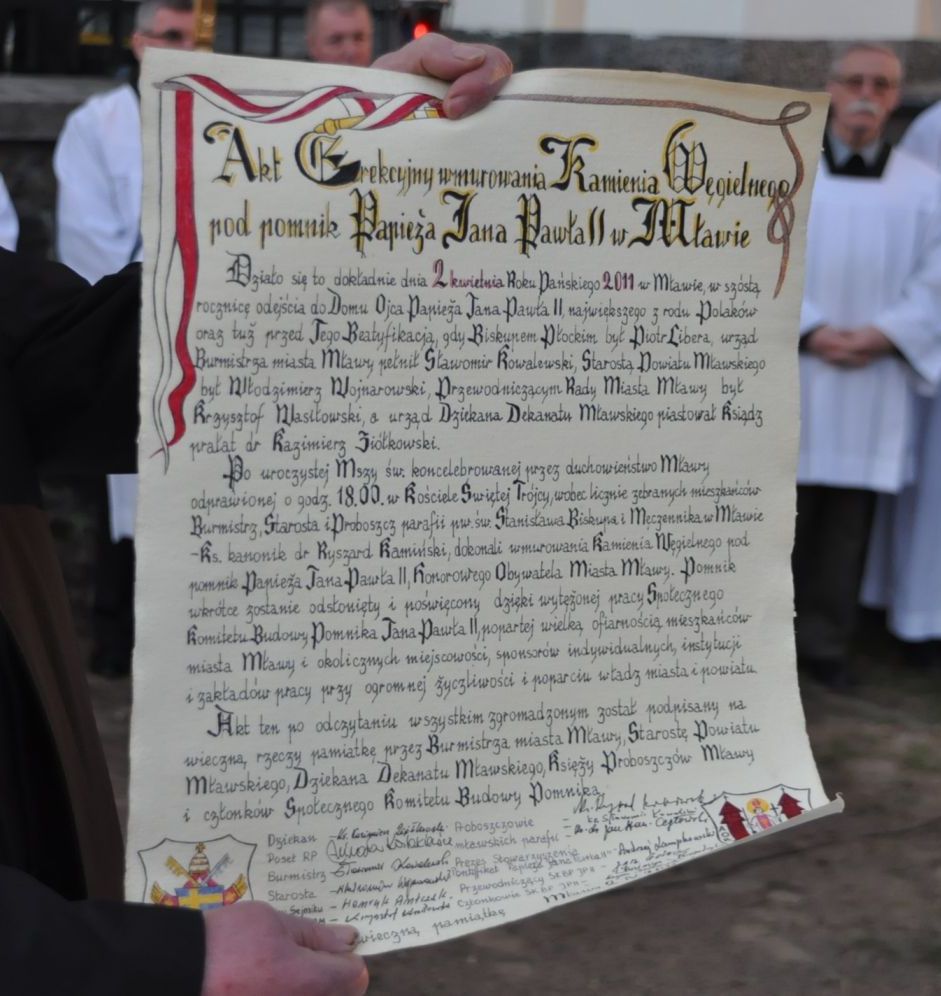 Akt Erekcyjny wmurowania Kamienia Węgielnego
pod pomnik Papieża Jana Pawła II w Mławie
Działo się to dokładnie dnia 2 kwietnia Roku Pańskiego 2011 w Mławie, w szóstą
rocznicę odejścia do Domu Ojca Papieża Jana Pawła II, największego z rodu Polaków
oraz tuż przed Jego Beatyfikacją, gdy Biskupem Płockim był Piotr Libera, urząd
Burmistrza miasta Mławy pełnił Sławomir Kowalewski, Starostą Powiatu Mławskiego
był Włodzimierz Wojnarowski, Przewodniczącym Rady Miasta Mławy był
Krzysztof Wasiłowski, a urząd Dziekana Dekanatu Mławskiego piastował Ksiądz
prałat dr Kazimierz Ziółkowski.
Po uroczystej Mszy św. koncelebrowanej przez duchowieństwo Mławy
odprawionej o godz. 18.00. w Kościele Świętej Trójcy, wobec licznie zebranych mieszkańców
Burmistrz, Starosta i Proboszcz parafii pw. św. Stanisława Biskupa i Męczennika w Mławie
-Ks. kanonik dr Ryszard Kamiński, dokonali wmurowania Kamienia Węgielnego pod
pomnik Papieża Jana Pawła II, Honorowego Obywatela Miasta Mławy. Pomnik
wkrótce zostanie odsłonięty i poświęcony dzięki wytężonej pracy Społecznego
Komitetu Budowy Pomnika Jana Pawła II, popartej wielką ofiarnością mieszkańców
miasta Mławy i okolicznych miejscowości, sponsorów indywidualnych, instytucji
i zakładów pracy przy ogromnej życzliwości i poparciu władz miasta i powiatu.
Akt ten po odczytaniu wszystkim zgromadzonym został podpisany na
wieczną rzeczy pamiątkę przez Burmistrza miasta Mławy, Starostę Powiatu
Mławskiego, Dziekana Dekanatu Mławskiego, Księży Proboszczów Mławy
i członków Społecznego Komitetu Budowy Pomnika.
Dziekan
Proboszczowie
Poseł RP
mławskich parafii
Burmistrz
Prezes Stowarzyszenia
Starosta
Przewodniczący SKBP JPII
Członkowie SKBP JPII
wieczną pamiątkę